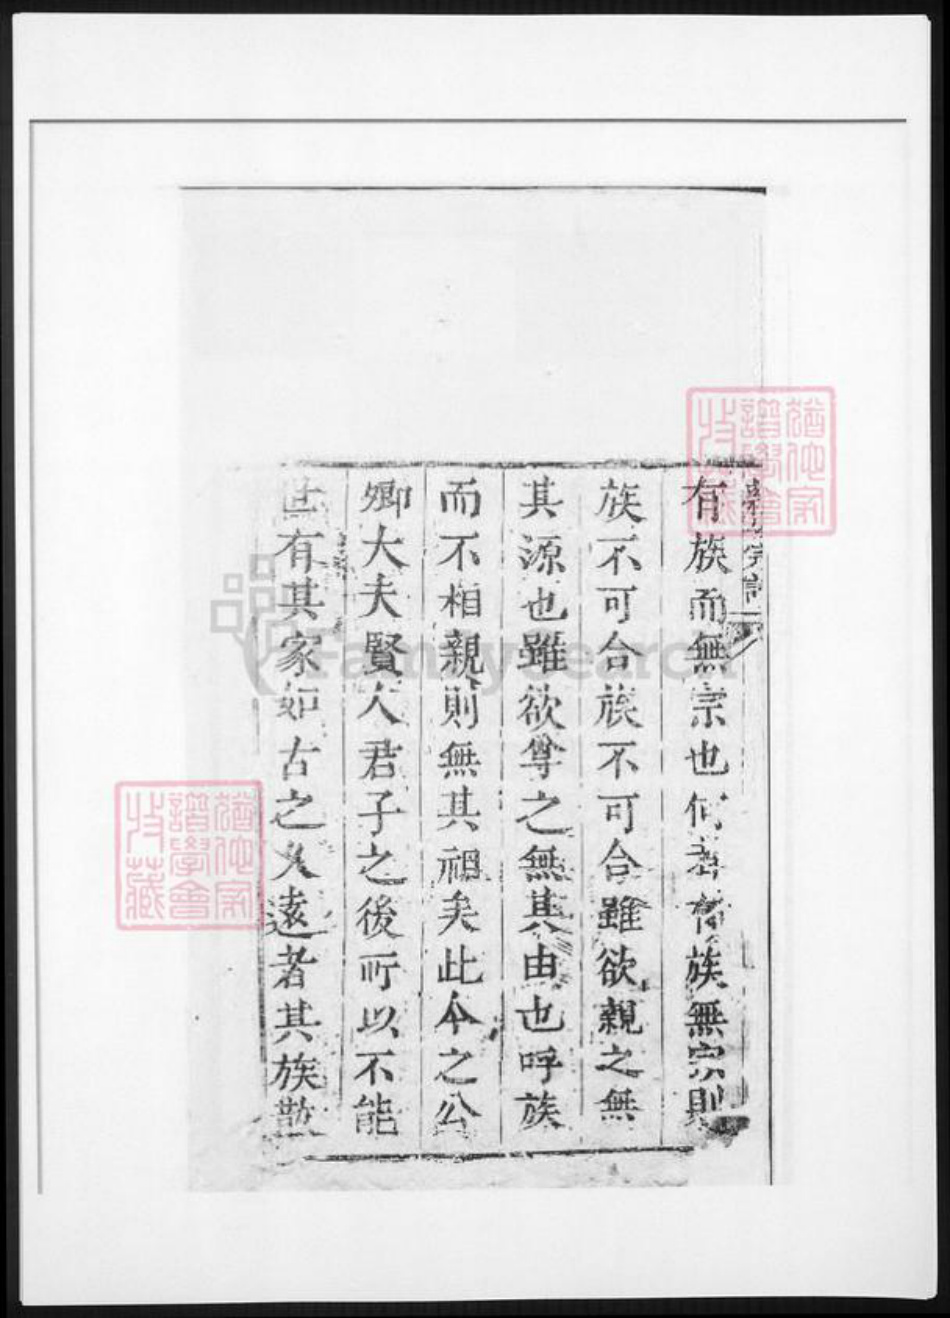 有族而無宗也何者有族無宗則
族不可合族不可合雖欲親之無
其源也雖欲尊之無其由也呼族
而不相親則無其祖矣此今之公
卿大夫賢人君子之後所以不能
世有其家如古之久遠者其族散
猶他家
譜學會
收藏
猶他家
譜學會
收藏
FamilySearch